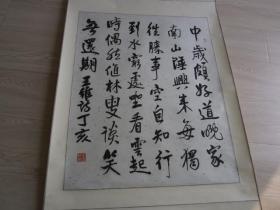 中歲頗好道晚家
南山陲興來每獨
往勝事空自知行
到水窮處坐看雲起
時偶然值林叟談笑
無還期 王維詩 丁亥